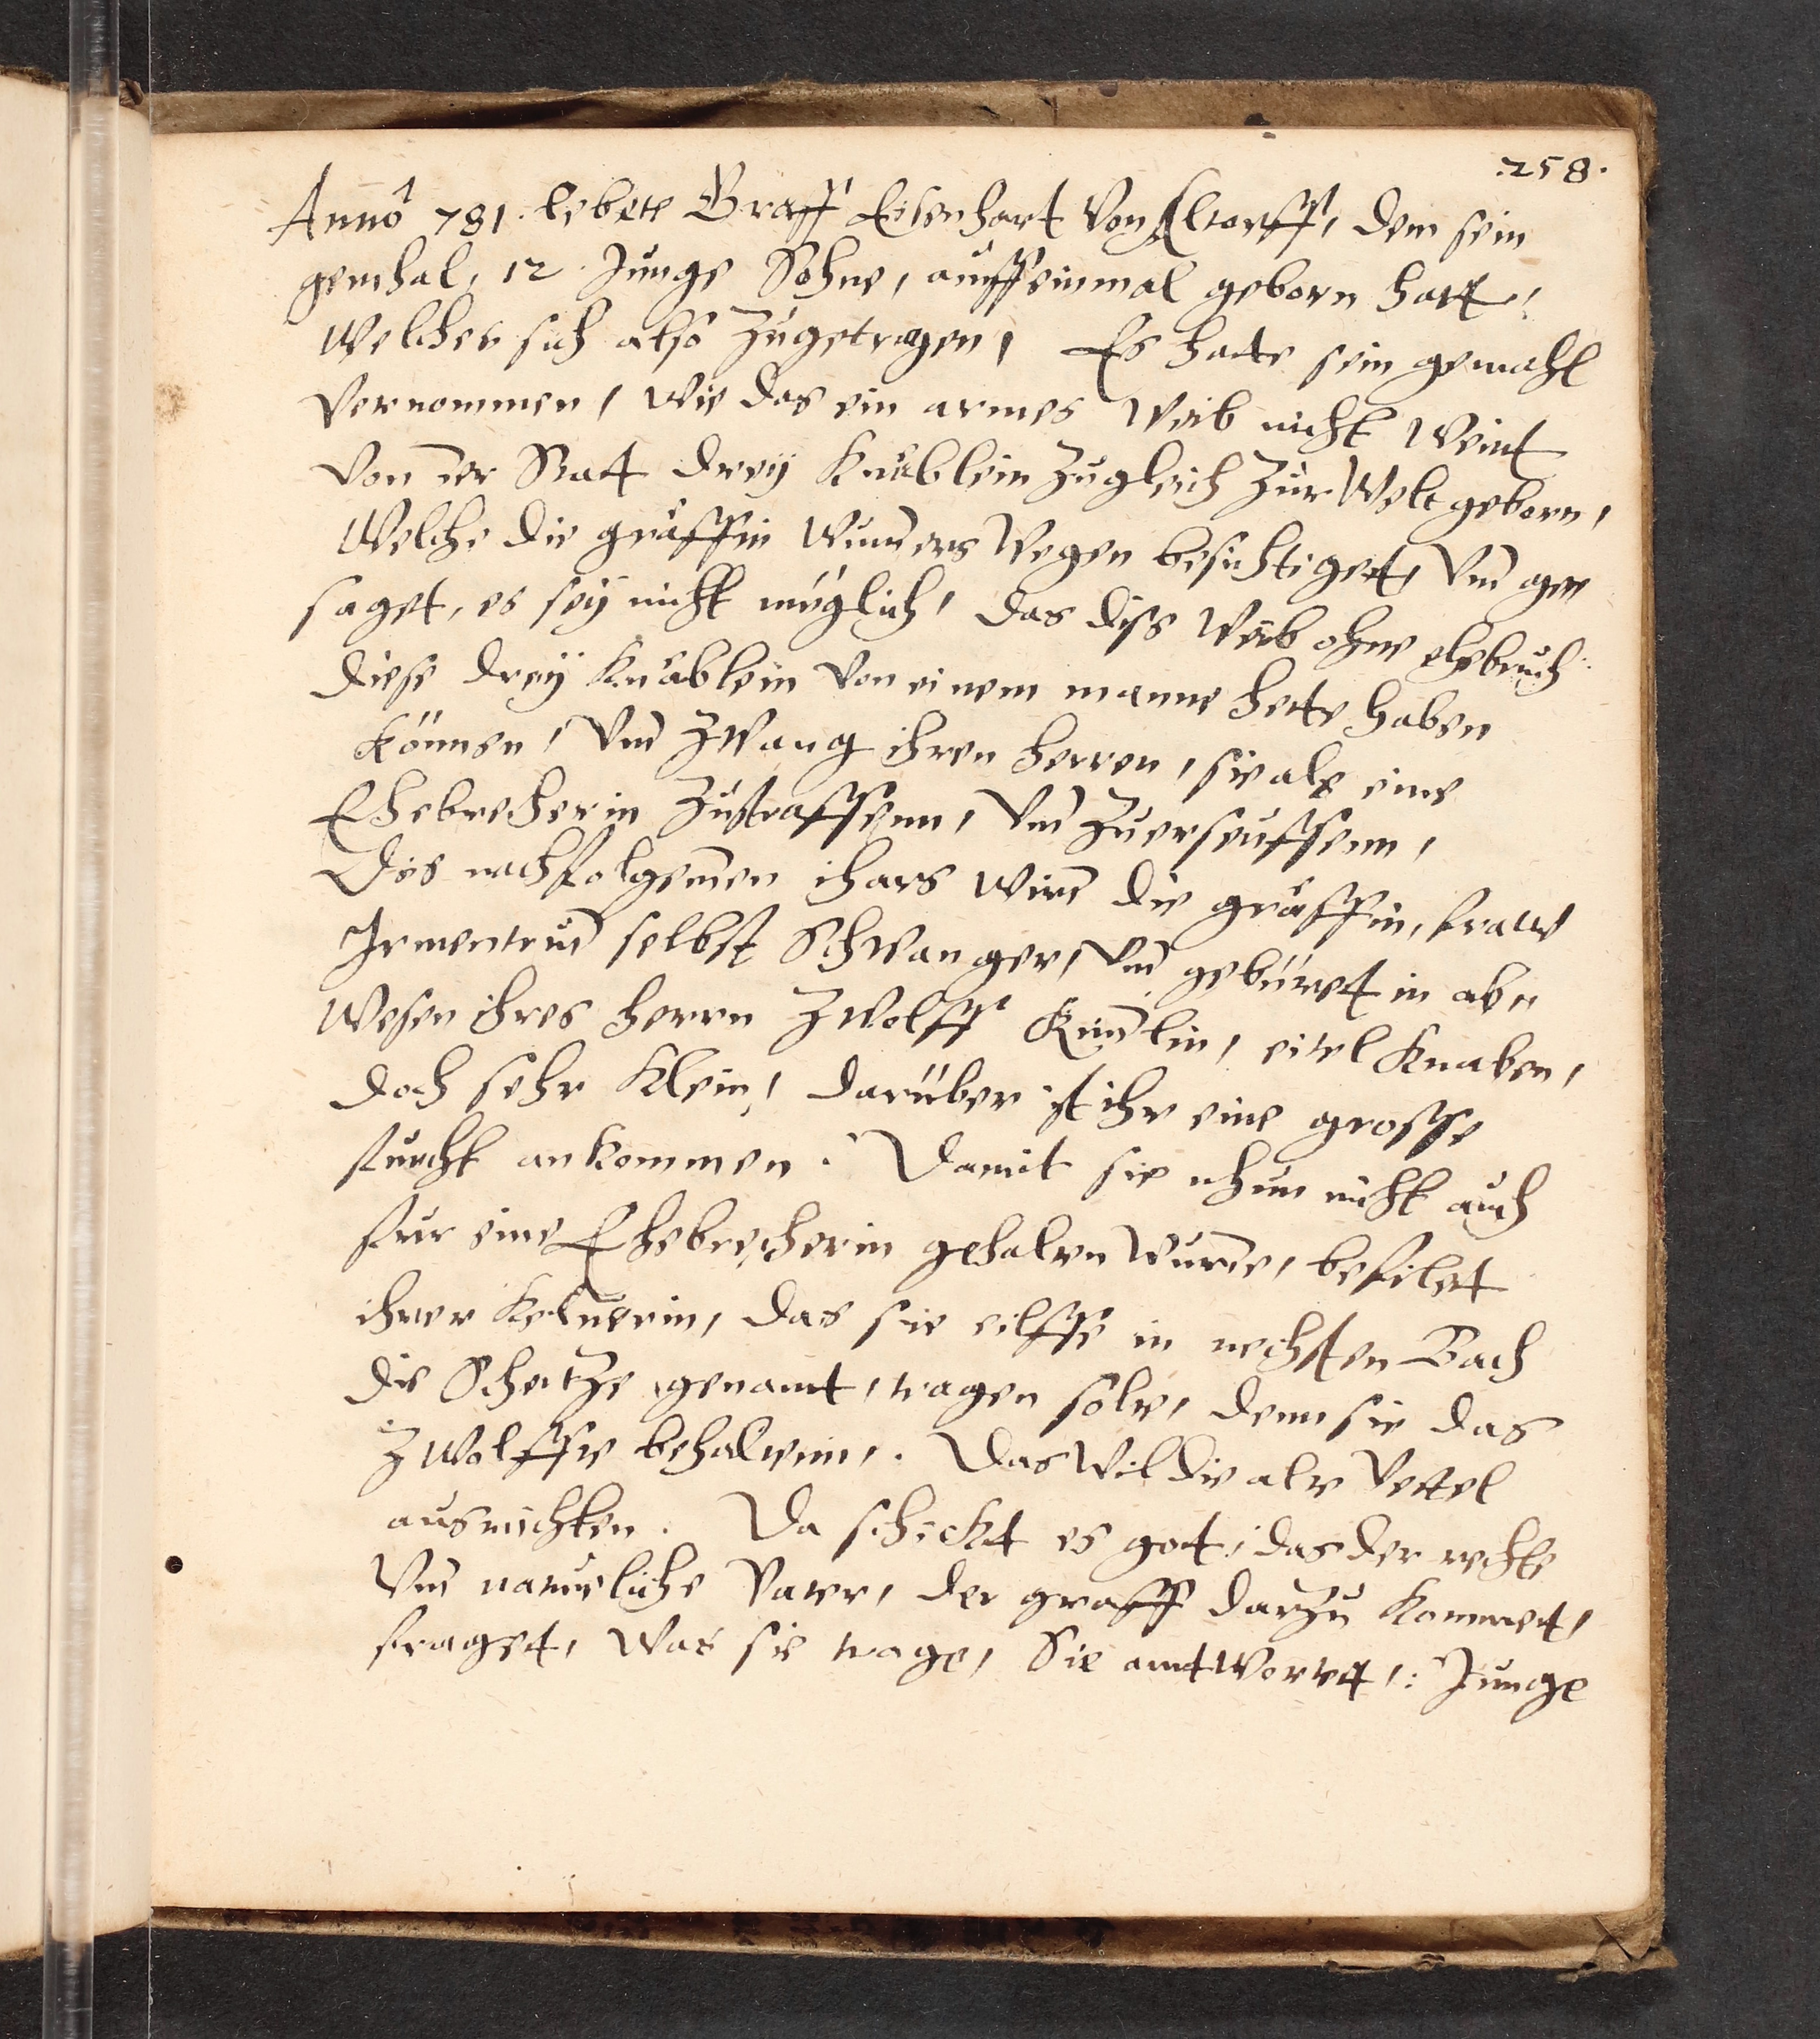 258.
Anno 781. lebete Graff Eisenhart von Altorff, dem sein
gemhal, 12. Junge Söhne, auff einmal geborn hatt,
welches sich also zugetragen, Es hatte sein gemahl
vernommen, wie das ein armes Weib nicht weint
von der Stat drey Knäblein zugleich zur Welt geborn,
Welche die gräffin wunders wegen besichtiget, vnd ge
saget, es sey nicht müglich, das diss Weib ohne ehebruch
diese drey Knäblein von einem manne hette haben
können, vnd zwang ihren herren, sie als eine
Ehebrecherin zustraffenn, vnd zuerseuffenn,
Des nachfolgenden ihars wird die gräffin, fraw
Irmentrud selbst Schwanger, vnd gebüret in ab
wesen ihres herrn zwolff Kindlin, eitel Knaben,
doch sehr klein, darüber ist ihr eine grosse
furcht ankommen. Damit sie nhun nicht auch
fur eine Ehebrecherin gehalten wurde, befilet
ihrer Kelnerin, das sie eilffe in nechsten Bach
die Schertze genant, tragen solte, denn sie das
zwolffte behaltenn,. Das wil die alte Vettel
ausrichten. Da schickt es got, das der rechte
vnd naturliche Vater, der graff darzu kommet,
fraget, was sie trage, Sie antwortet,: Junge